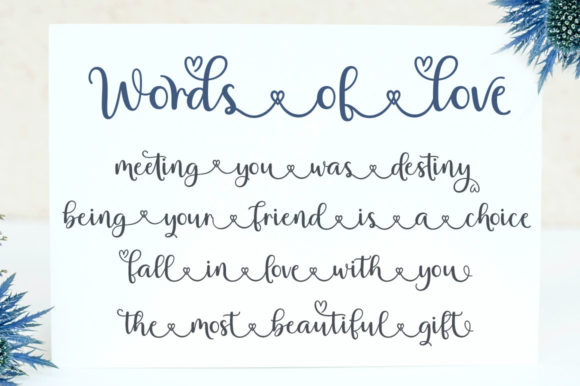 Words of love
meeting you was destiny
being your friend is a choice
fall in love with you
the most beautiful gift